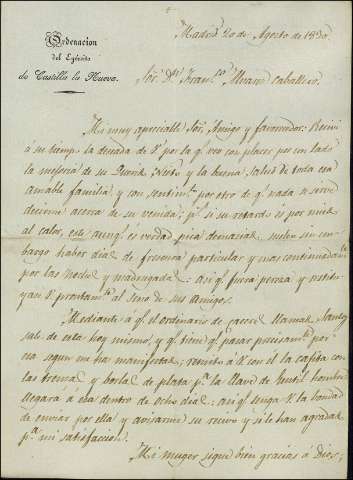 Ordenacion
del Egército
de Castilla la Nueva.
Madrid 20 de Agosto de 1830
Sor. Dn. Franco. Alvaro Caballero.
Mi muy apreciable Sor, Amigo y favorecedor: Recivi
a su tiempo la deseada de V. por la q.e veo con placer por un lado
la mejoria de su querido Nieto y la buena salud de toda esa
amable familia y con sentimto. por otro de q.e nada se sirve
decirme acerca de su venida; p.s si su retardo es por miedo
al calor, este aunq.e es verdad pica demasiado, suelen sin em-
bargo haber dias de frescura particular y mas continuadamte.
por las noches y madrugadas: asi q.e fuera pereza y restitu-
yase V. prontamte. al Seno de sus Amigos.
Mediante á q.e el ordinario de Caceres llamado Santos
sale de esta hoy mismo, y q.e tiene q.e pasar precisamte. por
esa segun me ha manifestado, remito á V. con el la cajita con
las trenzas y borla de plata p.a la llave de Gentil hombre
llegará a esa dentro de ocho dias: asi q.e tenga V. la bondad
de enviar por ella y avisarme su recivo y si le han agradado
p.a mi satisfaccion.
Mi muger sigue bien gracias á Dios;